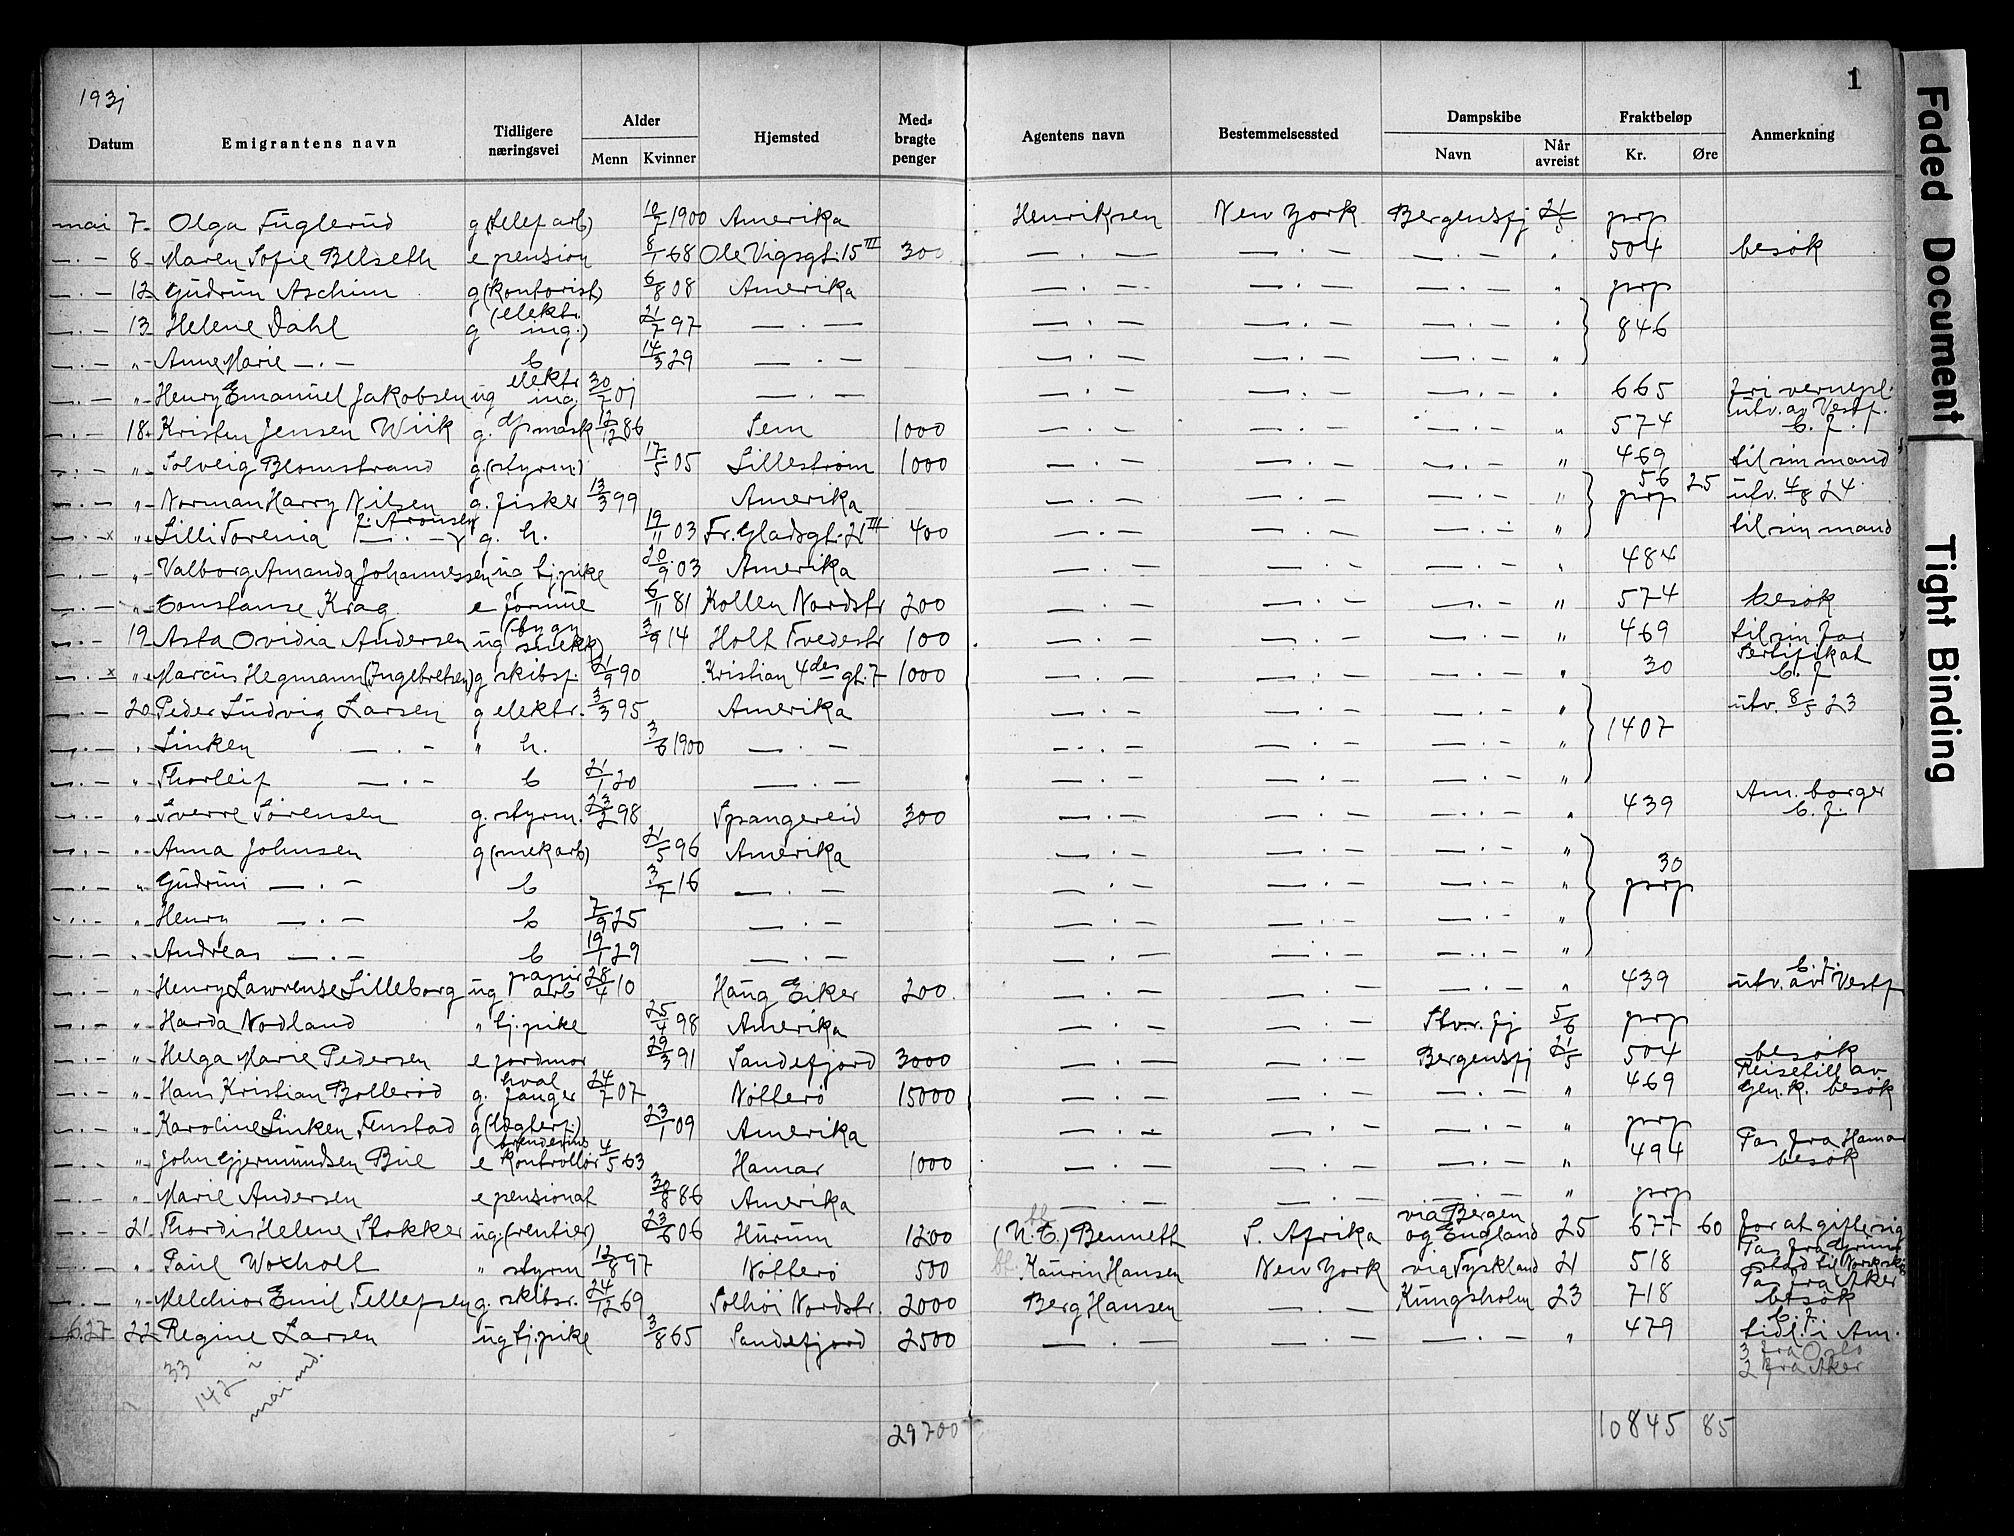 1931
1
Datum Emigrantens navn Tidligere næringsvei Alder Menn Kvinner Hjemsted Med-bragte penger Agentens navn Bestemmelsessted Dampskibe Navn Når avreist Fraktbeløp Kr. Øre Anmerkning
mai 7 Olga Fuglerud g (telef arb) 10/7 1900 Amerika Henriksen New York Bergensfj 21/5 prp
—.— 8 Maren Sofie Belseth e pension 8/1 68 Ole Vigsgt. 15 III 300 —.— —.— —.— " 504 besøk
—.— 12 Gudrun Aschim g (kontorist) 6/8 08 Amerika —.— —.— —.— " prp
—.— 13 Helene Dahl g (elektr. ing.) 21/7 97 —.— —.— —.— —.— " 846
—.— " Anne Marie —.— b 14/3 29 —.— —.— —.— —.— "
—.— " Henry Emanuel Jakobsen ug elektr ing. 30/7 01 —.— —.— —.— —.— " 665 fri vernepl.
—.— 18 Kristen Jensen Wiik g. dpmask 12/12 86 Sem 1000 —.— —.— —.— " 574 utv. av Vestf. b. f.
—.— " Solveig Blomstrand g (styrm.) 17/5 05 Lillestrøm 1000 —.— —.— —.— " 469 til sin mand
—.— " Norman Harry Nilsen g. fisker 13/3 99 Amerika —.— —.— —.— " 56 prp 25 utv. 4/8 24
—.— x " Lilli Torenia —.— f. Aronsen g. h. 19/11 03 Fr. Gladsgt. 21 III 400 —.— —.— —.— " til sin mand
—.— " Valborg Amanda Johannessen ug tj.pike 20/9 03 Amerika —.— —.— —.— " 484
—.— " Constanse Krag e formue 6/11 81 Kollen Nordstr 200 —.— —.— —.— " 574 besøk
—.— 19 Asta Ovidia Andersen ug (bygn snekk) 3/9 14 Holt Tvedestr 100 —.— —.— —.— " 469 til sin far
—.— x " Marcus Hegmann (Ingebretsen) g skibsf. 21/9 90 Kristian 4des gt. 7 1000 —.— —.— —.— " 30 Sertifikat b. f
—.— 20 Peder Ludvig Larsen g elektr. 3/3 95 Amerika —.— —.— —.— " utv. 8/5 23
—.— " Linken —.— " h. 3/6 1900 —.— —.— —.— —.— " 1407
—.— " Thorleif —.— b 21/1 20 —.— —.— —.— —.— "
—.— " Sverre Sørensen g. styrm. 23/2 98 Spangereid 300 —.— —.— —.— " 439 Am. borger b. f.
—.— " Anna Johnsen g (mek arb) 21/5 96 Amerika —.— —.— —.— "
—.— " Gudrun —.— b 3/7 16 —.— —.— —.— —.— " 30 prp
—.— " Henry —.— b 7/9 25 —.— —.— —.— —.— "
—.— " Andreas —.— b 19/1 29 —.— —.— —.— —.— "
—.— " Henry Lawrense Lilleborg ug papir arb 28/4 10 Haug Eiker 200 —.— —.— —.— " 439 b. f. utv. av Vestf
—.— " Harda Nodland " tj.pike 25/4 98 Amerika —.— —.— Stvr. fj 5/6 prp
—.— " Helga Marie Pedersen e jordmor 29/3 91 Sandefjord 3000 —.— —.— Bergensfj 21/5 504 besøk
—.— " Hans Kristian Bollerød g. hval fanger 24/7 07 Nøtterø 15000 —.— —.— —.— " 469 Reisetill av Gen.k. besøk
—.— " Karoline Linken Tenstad g (lagterf.) 23/1 09 Amerika —.— —.— —.— " prp
—.— " John Gjermundsen Bue e brendevins kontrollør 4/5 63 Hamar 1000 —.— —.— —.— " 494 Pas fra Hamar besøk
—.— " Marie Andersen e pensionat 30/8 86 Amerika —.— —.— —.— " prp
—.— 21 Thordis Helene Stokker ug. (rentier) 23/6 06 Hurum 1200 (N. E.) Bennett S. Afrika via Bergen og England 25 677 60 for at gifte sig
—.— " Paul Woxholt " styrm 12/8 97 Nøtterø 500 Kaurin Hansen New York via Tyskland 21 518 Pas fra Grimstad til Norsk skip
—.— " Melchior Emil Tellefsen g. skibsr. 24/12 69 Solhøi Nordstr. 2000 Berg Hansen —.— Kungsholm 23 718 Pas fra Aker besøk
627 22 Regine Larsen ug tj.pike 3/8 65 Sandefjord 2500 —.— —.— —.— " 479 b. f. tidl. i Am.
33
142 i mai md.
3 fra Oslo
2 fra Aker
29700 10845 85
Faded Document
Tight Binding